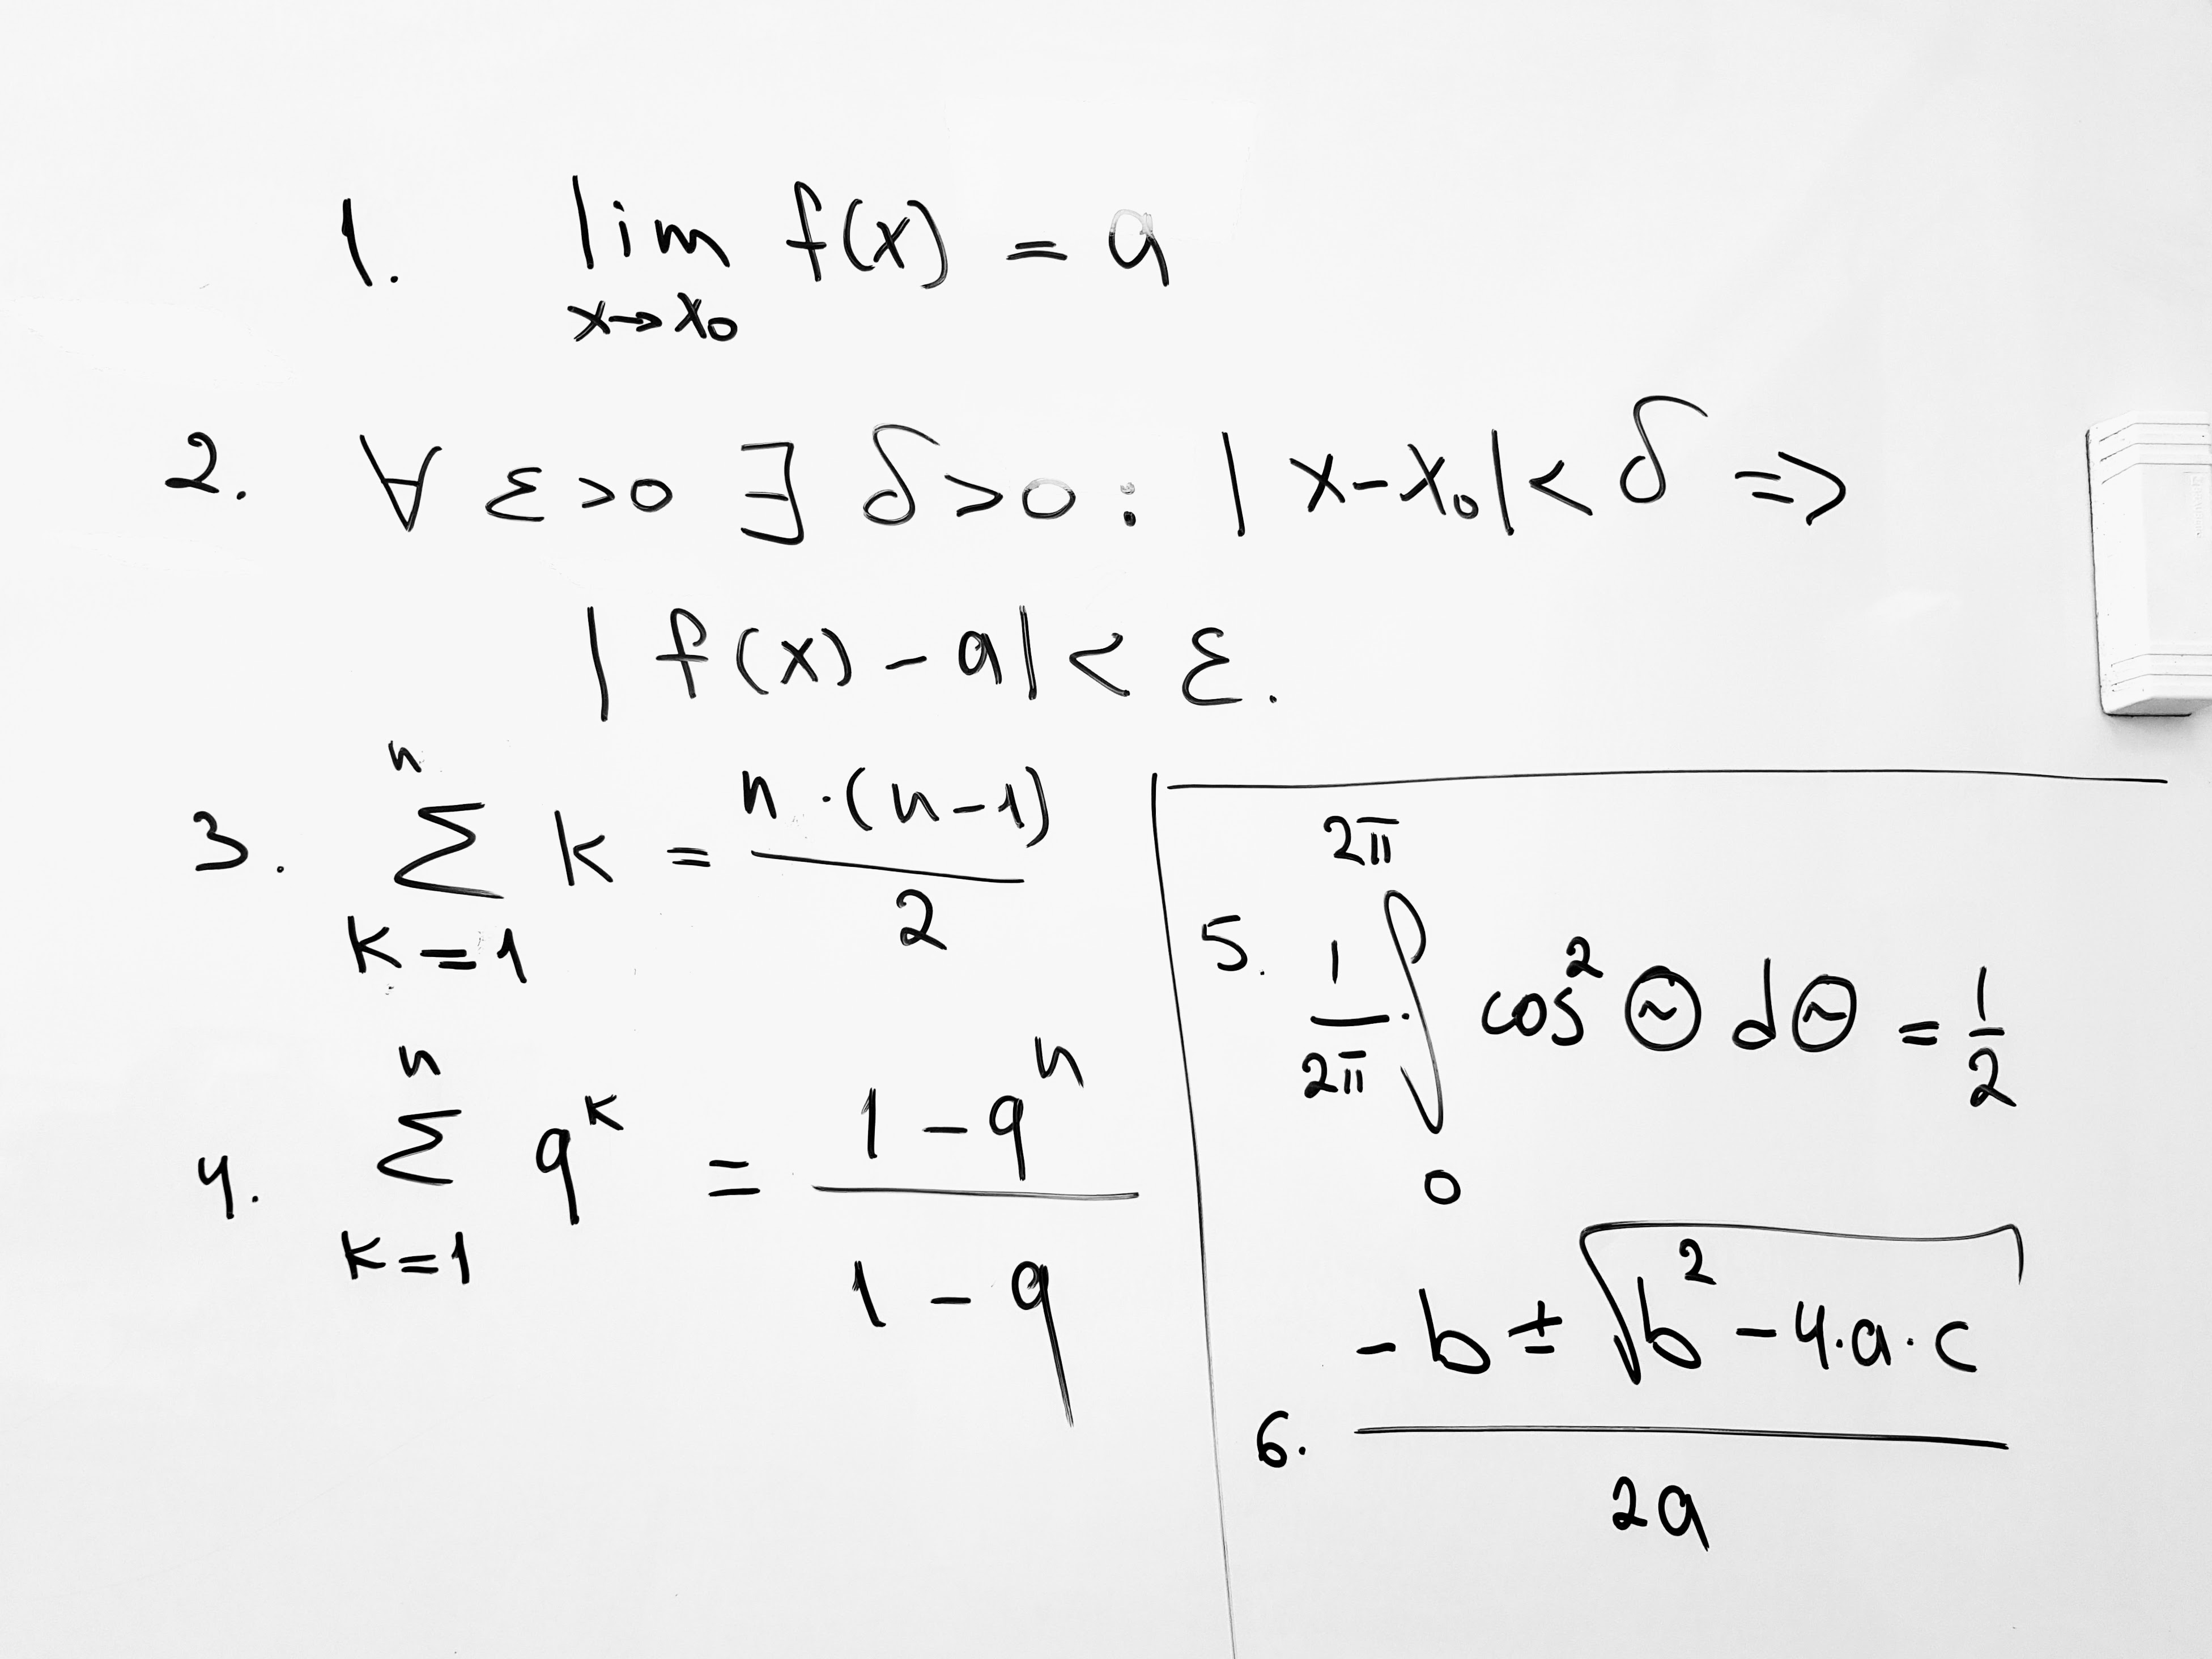 1. lim f(x) = a
x→x₀
2. ∀ ε>0 ∃ δ>0 : |x-x₀|<δ ⇒
|f(x)-a|< ε.
3. \sum_{k=1}^{n} k = \frac{n·(n-1)}{2}
4. \sum_{k=1}^{n} q^k = \frac{1-q^n}{1-q}
5. \frac{1}{2π}·\int_{0}^{2π} cos² Θ dΘ = \frac{1}{2}
6. \frac{-b ± \sqrt{b²-4·a·c}}{2a}